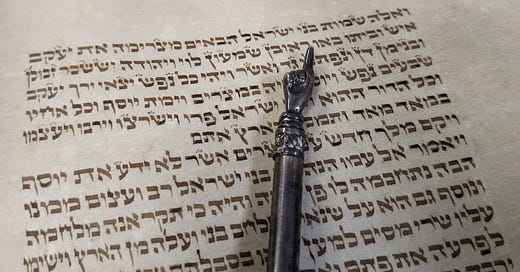 ואלה שמות בני ישראל הבאים מצרימה את יעקב
איש וביתו באו ראובן שמעון לוי ויהודה יששכר זבולן
ובנימן דן ונפתלי ואשר ויהי כל נפש יצאי ירך יעקב
שבעים נפש ויוסף במצרים וימת יוסף וכל אחיו
וכל הדור ההוא ישראל פרו וישרצו וירבו ויעצמו
במאד מאד ותמלא אתם
ויקם מלך חדש מצרים אשר לא ידע את יוסף
ויאמר אל עמו בני ישראל רב ועצום ממנו
הבה נתחכמה לו והיה כי תקראנה מלחמה
ונוסף גם הוא ונלחם בנו ועלה מן הארץ וישימו
עליו שרי מסים
לפרעה את